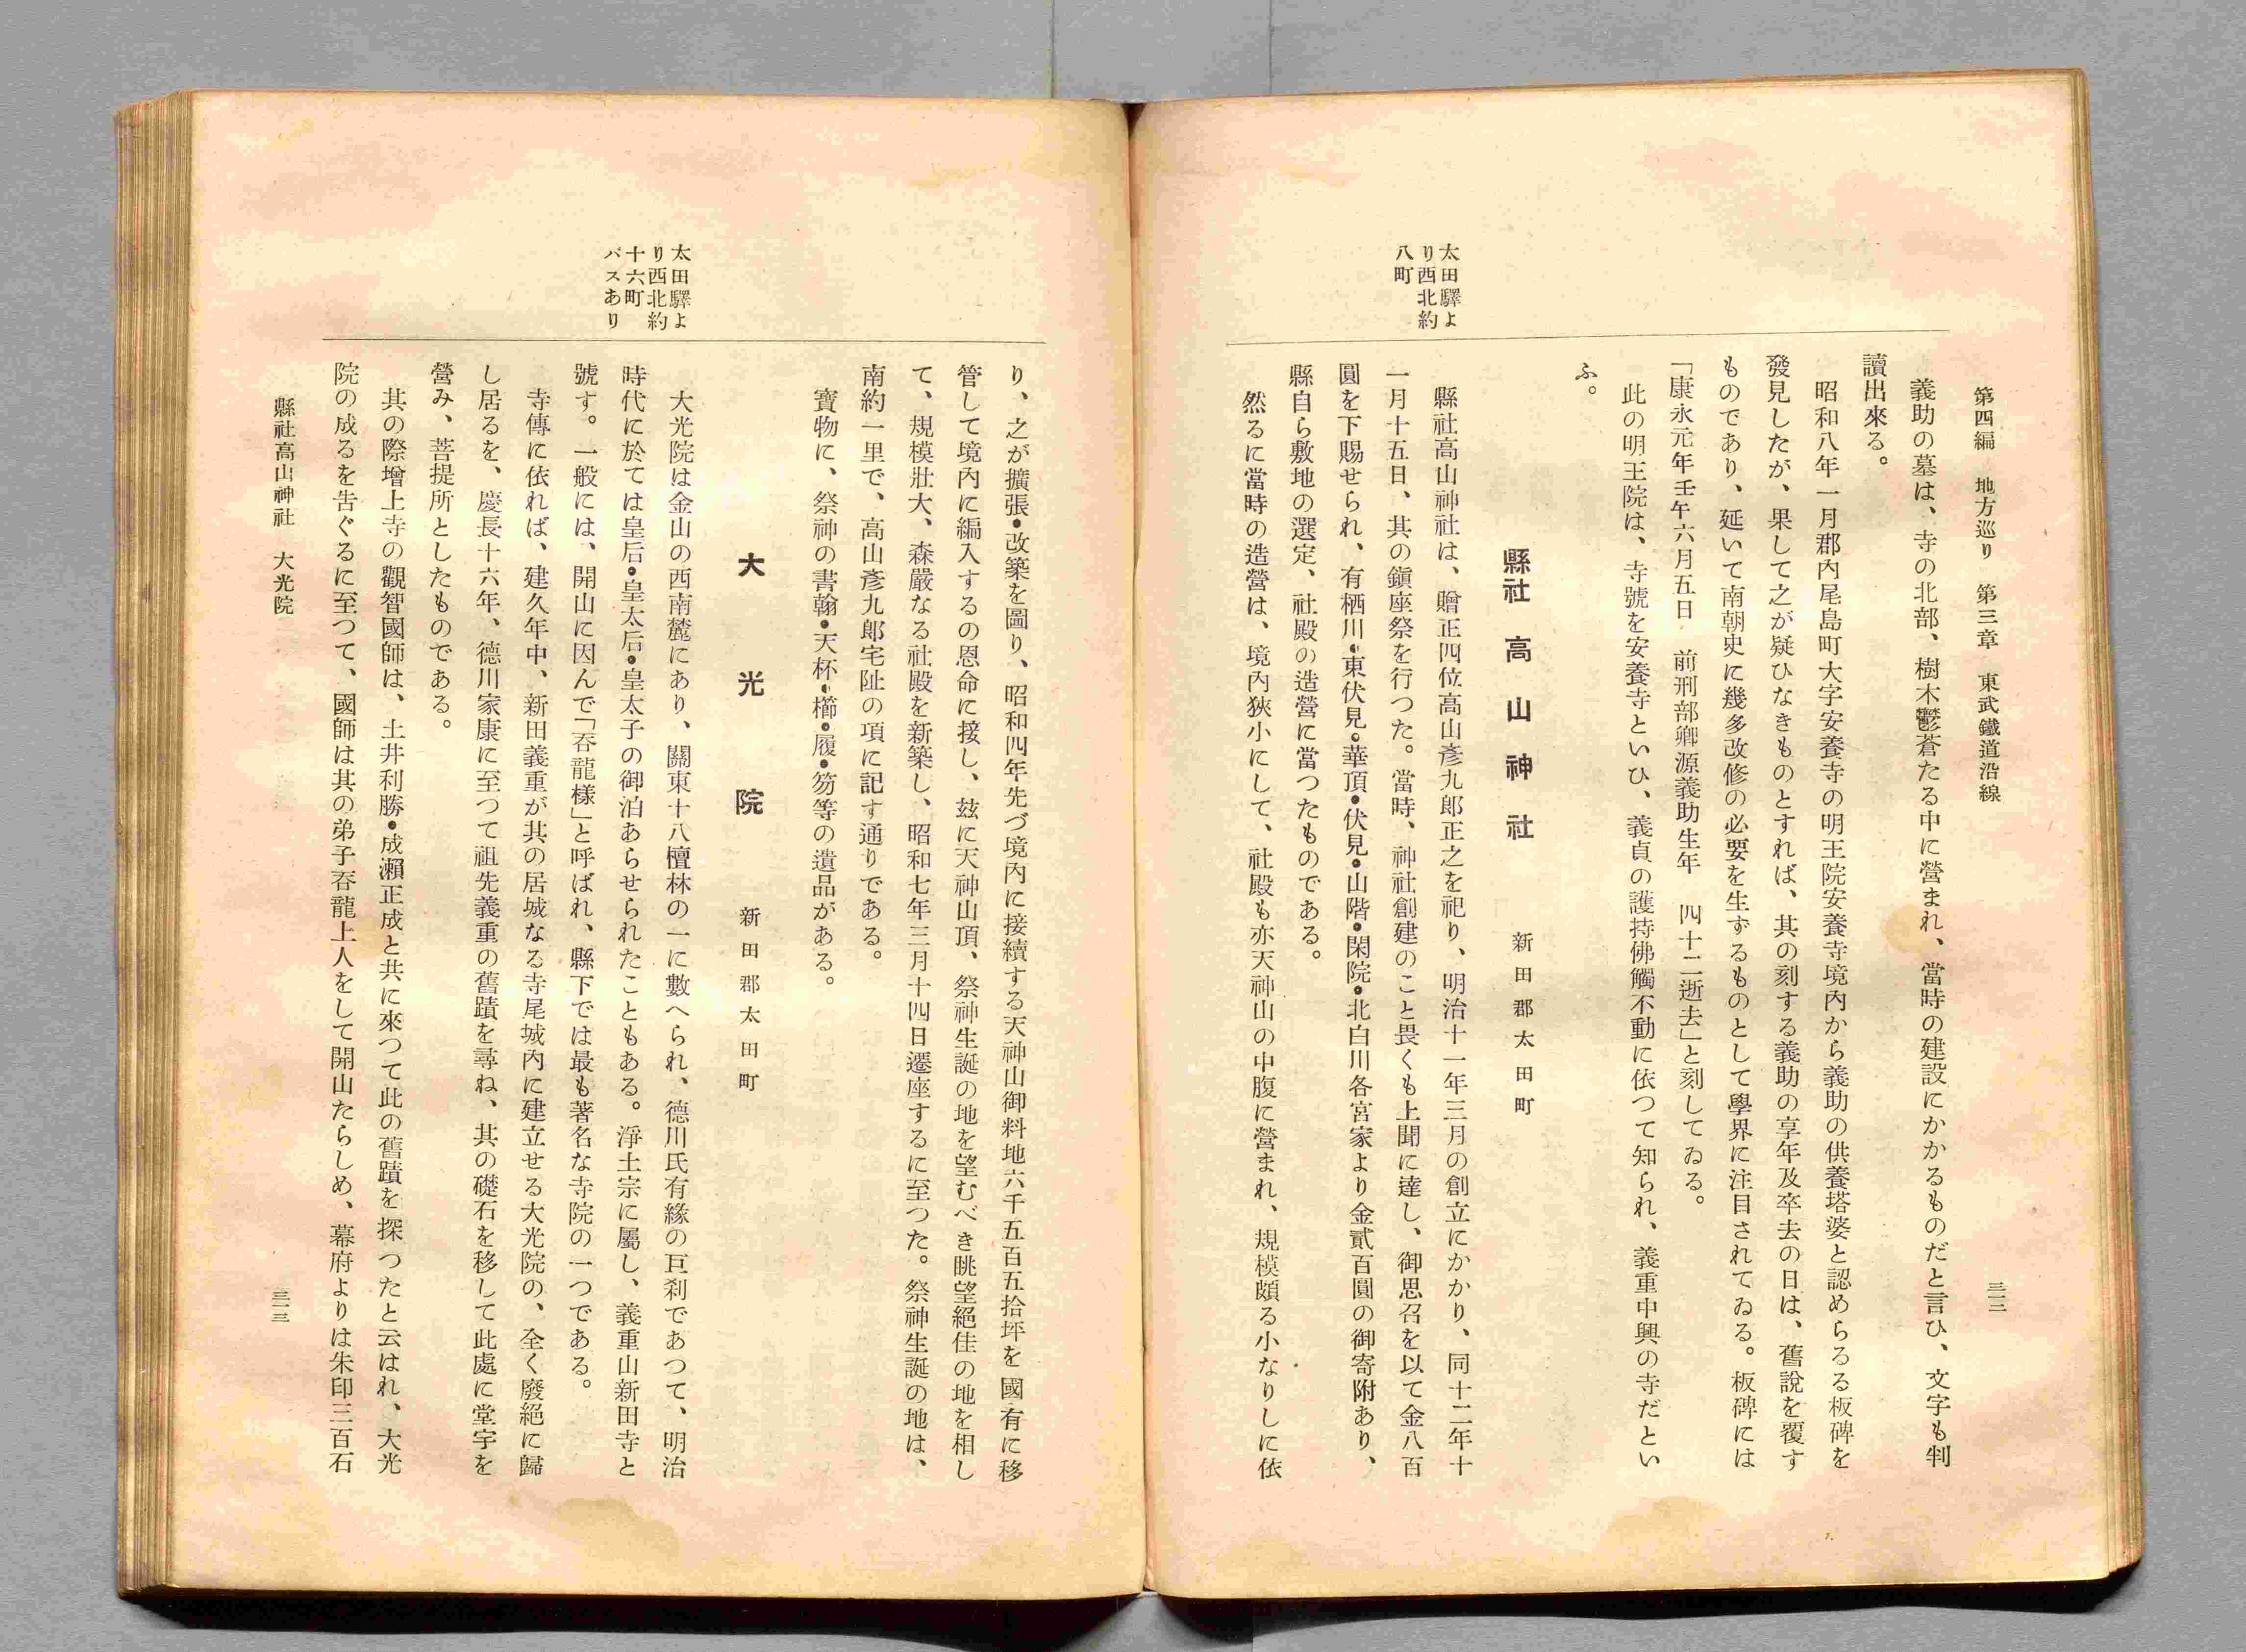 第四編　地方巡り　第三章　東武鐵道沿線
三一二
義助の墓は、寺の北部、樹木鬱蒼たる中に營まれ、當時の建設にかかるものだと言ひ、文字も判
讀出來る。
昭和八年一月郡內尾島町大字安養寺の明王院安養寺境內から義助の供養塔婆と認めらるる板碑を
發見したが、果して之が疑ひなきものとすれば、其の刻する義助の享年及卒去の日は、舊說を覆す
ものであり、延いて南朝史に幾多改修の必要を生ずるものとして學界に注目されてゐる。板碑には
「康永元年壬午六月五日　前刑部卿源義助生年　四十二逝去」と刻してゐる。
此の明王院は、寺號を安養寺といひ、義貞の護持佛觸不動に依つて知られ、義重中興の寺だとい
ふ。
縣社　高山神社　新田郡太田町
太田驛よ
り西北約
八町
縣社高山神社は、贈正四位高山彥九郎正之を祀り、明治十一年三月の創立にかかり、同十二年十
一月十五日、其の鎭座祭を行つた。當時、神社創建のこと畏くも上聞に達し、御思召を以て金八百
圓を下賜せられ、有栖川・東伏見・華頂・伏見・山階・閑院・北白川各宮家より金貳百圓の御寄附あり、
縣自ら敷地の選定、社殿の造營に當つたものである。
然るに當時の造營は、境內狹小にして、社殿も亦天神山の中腹に營まれ、規模頗る小なりしに依
り、之が擴張・改築を圖り、昭和四年先づ境內に接續する天神山御料地六千五百五拾坪を國有に移
管して境內に編入するの恩命に接し、玆に天神山頂、祭神生誕の地を望むべき眺望絕佳の地を相し
て、規模壯大、森嚴なる社殿を新築し、昭和七年三月十四日遷座するに至つた。祭神生誕の地は、
南約一里で、高山彥九郎宅阯の項に記す通りである。
寶物に、祭神の書翰・天杯・櫛・履・笏等の遺品がある。
大光院　新田郡太田町
太田驛よ
り西北約
十六町
バスあり
大光院は金山の西南麓にあり、關東十八檀林の一に數へられ、德川氏有緣の巨刹であつて、明治
時代に於ては皇后・皇太后・皇太子の御泊あらせられたこともある。淨土宗に屬し、義重山新田寺と
號す。一般には、開山に因んで「呑龍樣」と呼ばれ、縣下では最も著名な寺院の一つである。
寺傳に依れば、建久年中、新田義重が其の居城なる寺尾城內に建立せる大光院の、全く廢絕に歸
し居るを、慶長十六年、德川家康に至つて祖先義重の舊蹟を尋ね、其の礎石を移して此處に堂宇を
營み、菩提所としたものである。
其の際增上寺の觀智國師は、土井利勝・成瀨正成と共に來つて此の舊蹟を探つたと云はれ、大光
院の成るを告ぐるに至つて、國師は其の弟子呑龍上人をして開山たらしめ、幕府よりは朱印三百石
縣社高山神社　大光院
三一三